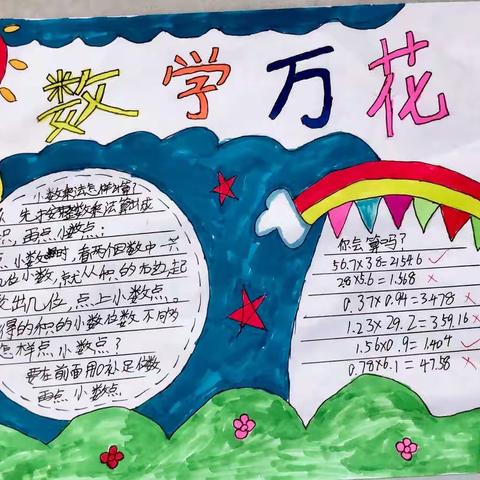 数学万花
小数乘法怎样算?
先按整数乘法算出
积,再点小数点;
点小数点时,看两个因数中一共
几位小数,就从积的右边起
数出几位,点上小数点。
得的积的小数位数不够
怎样点小数点?
要在前面用0补足位数,
再点小数点
你会算吗?
56.7×38=2154.6 ✓
28×5.6=1.568 ×
0.37×0.94=3478 ×
1.23×29.2=359.16 ×
1.56×0.9=1.404 ✓
0.78×6.1=47.58 ×